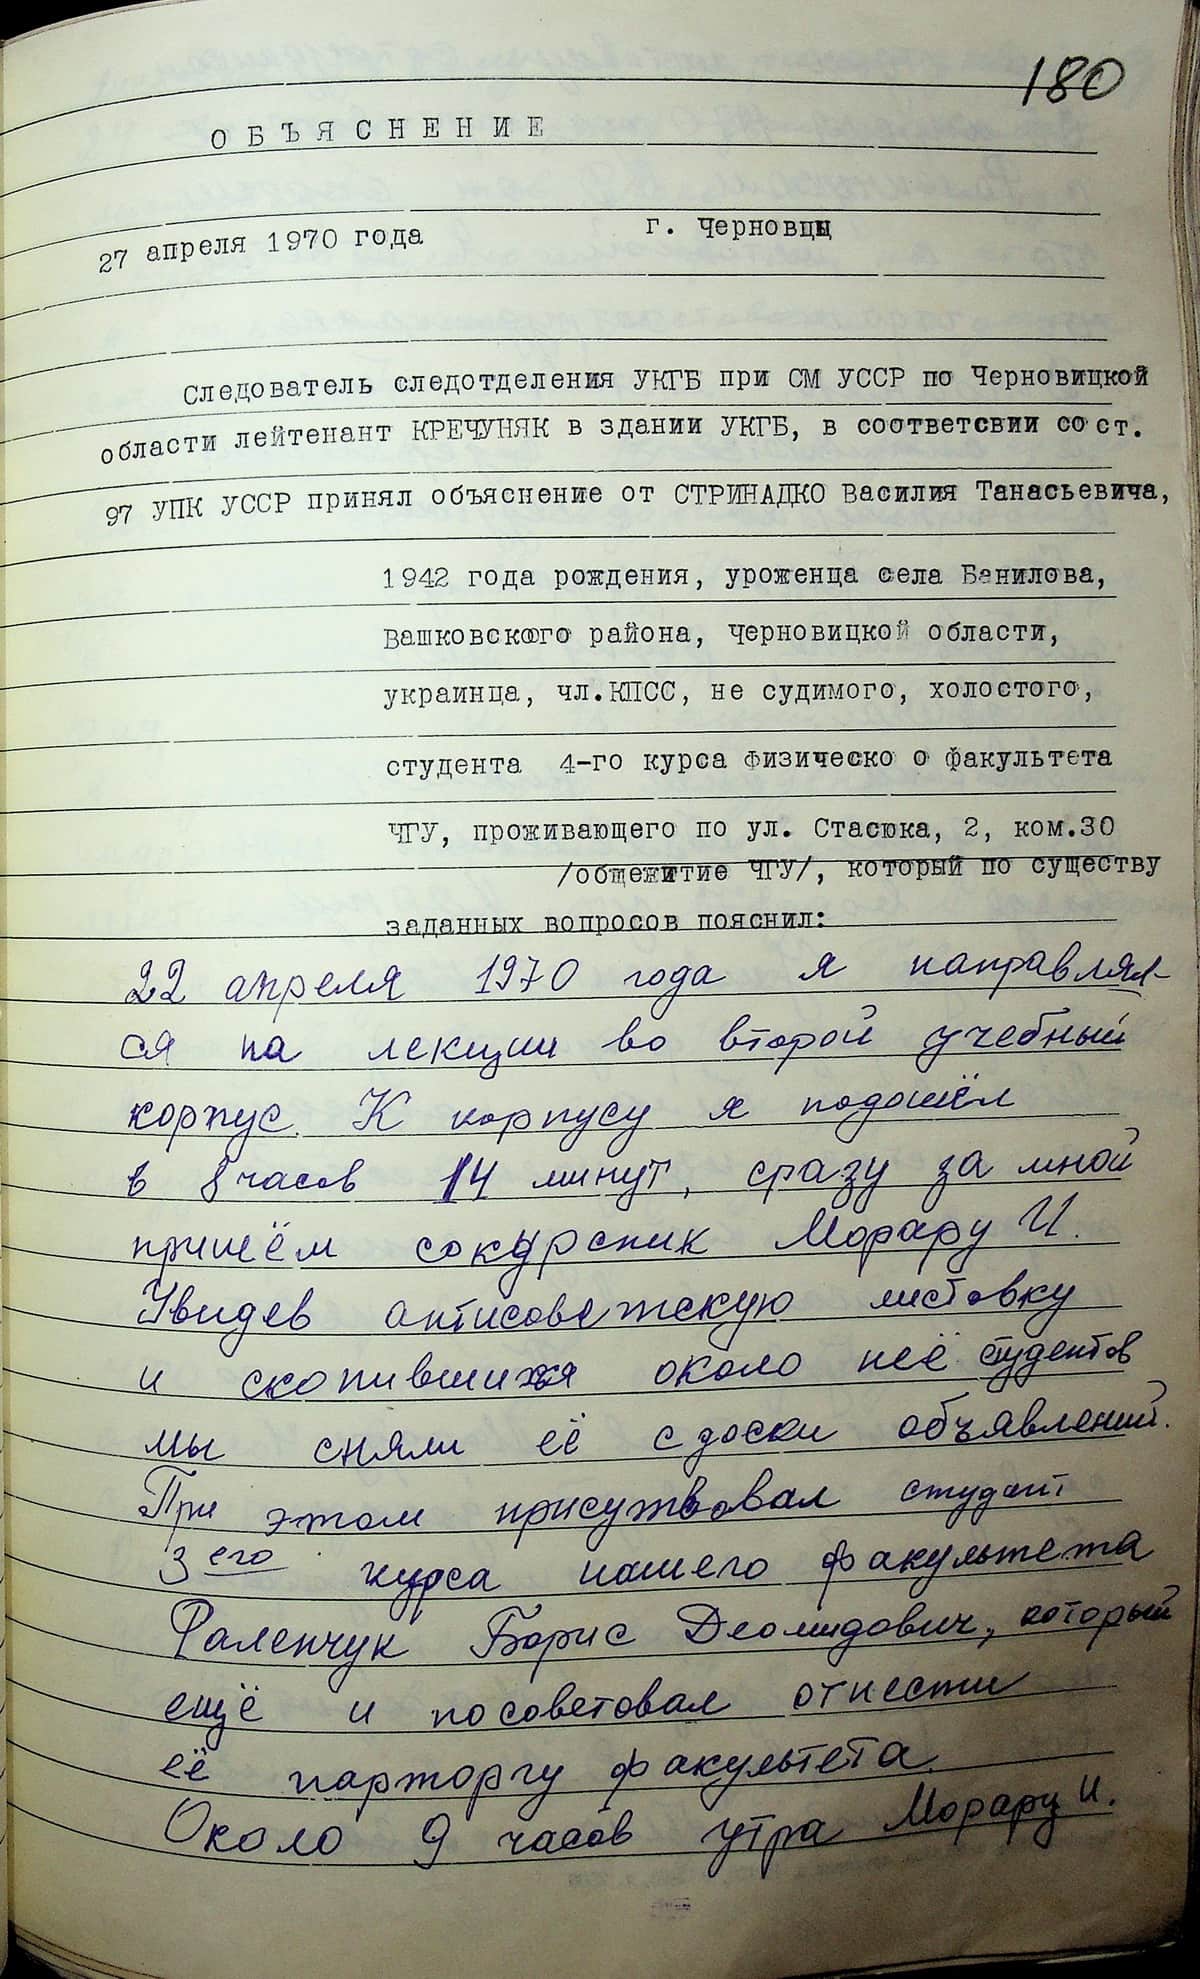 180
ОБЪЯСНЕНИЕ
27 апреля 1970 года г. Черновцы
Следователь следотделения УКГБ при СМ УССР по Черновицкой
области лейтенант КРЕЧУНЯК в здании УКГБ, в соответсвии со ст.
97 УПК УССР принял объяснение от СТРИНАДКО Василия Танасьевича,
1942 года рождения, уроженца села Банилова,
Вашковского района, Черновицкой области,
украинца, чл.КПСС, не судимого, холостого,
студента 4-го курса физическо о факультета
ЧГУ, проживающего по ул. Стасюка, 2, ком.30
/общежитие ЧГУ/, который по существу
заданных вопросов пояснил:
22 апреля 1970 года я направлял-
ся на лекции во второй учебный
корпус. К корпусу я подошёл
в 8 часов 14 минут, сразу за мной
пришём сокурсник Морару И.
Увидев антисоветскую листовку
и скопившихся около неё студентов
мы сняли её с доски объявлений.
При этом присутвовал студент
3его курса нашего факультета
Фаленчук Борис Деомидович, который
ещё и посоветовал отнести
её парторгу факультета.
Около 9 часов утра Морару И.